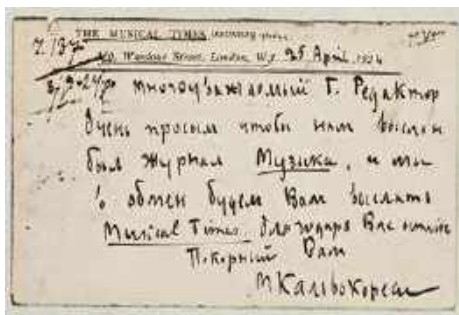 THE MUSICAL TIMES
Wardour Street, London, W.1. 25 April, 1924
многоуважаемый Г. Редактор
Очень просим чтобы нам выслан
был журнал Музыка, и мы
в обмен будем Вам высылать
Musical Times. благодаря Вас
Покорный Вам
М Кальвокоресси